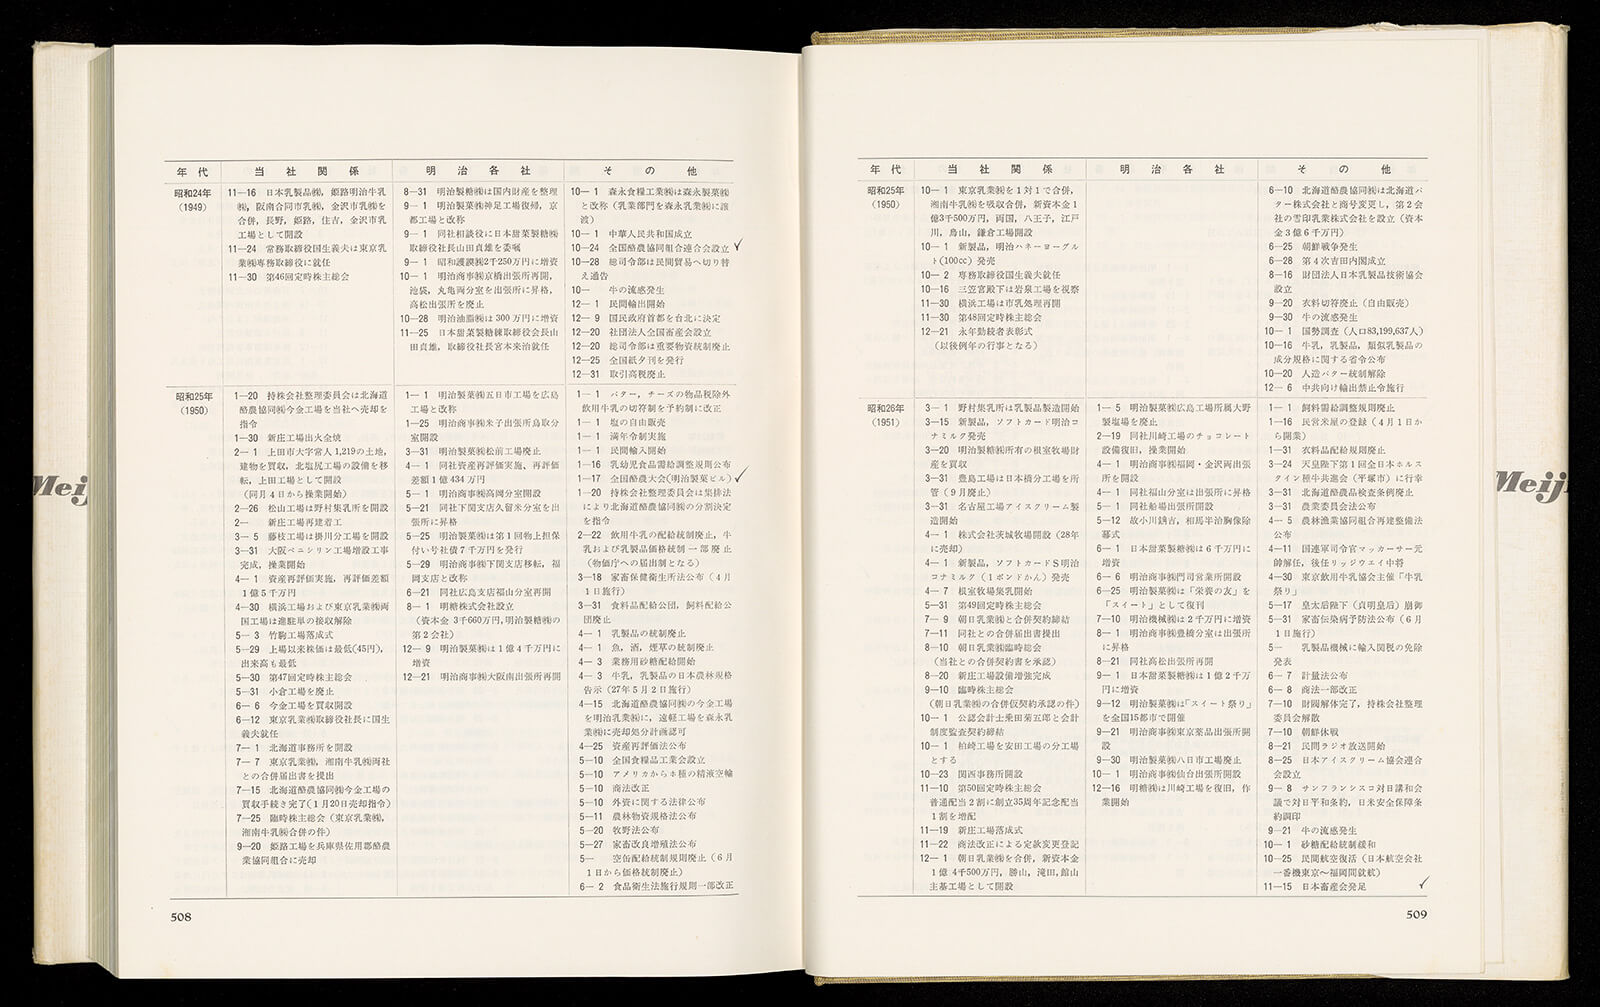 Meij
年代 当社関係 明治各社 その他
昭和24年
(1949)
11—16 日本乳製品㈱，姫路明治牛乳
㈱，阪南合同市乳㈱，金沢市乳㈱を
合併，長野，姫路，住吉，金沢市乳
工場として開設
11—24 常務取締役国生義夫は東京乳
業㈱専務取締役に就任
11—30 第46回定時株主総会
8—31 明治製糖㈱は国内財産を整理
9— 1 明治製菓㈱神足工場復帰，京
都工場と改称
9— 1 同社相談役に日本甜菜製糖㈱
取締役社長山田貞雄を委嘱
9— 1 昭和護謨㈱2千250万円に増資
10— 1 明治商事㈱京橋出張所再開，
池袋，丸亀両分室を出張所に昇格，
高松出張所を廃止
10—28 明治油脂㈱は 300 万円に増資
11—25 日本甜菜製糖㈱取締役会長山
田貞雄，取締役社長宮本来治就任
10— 1 森永食糧工業㈱は森永製菓㈱
と改称（乳業部門を森永乳業㈱に譲
渡）
10— 1 中華人民共和国成立
10—24 全国酪農協同組合連合会設立
10—28 総司令部は民間貿易へ切り替
え通告
10— 牛の流感発生
12— 1 民間輸出開始
12— 9 国民政府首都を台北に決定
12—20 社団法人全国畜産会設立
12—20 総司令部は重要物資統制廃止
12—25 全国紙夕刊を発行
12—31 取引高税廃止
昭和25年
(1950)
1—20 持株会社整理委員会は北海道
酪農協同㈱今金工場を当社へ売却を
指令
1—30 新庄工場出火全焼
2— 1 上田市大字常入 1,219の土地，
建物を買収，北塩尻工場の設備を移
転，上田工場として開設
（同月 4 日から操業開始）
2—26 松山工場は野村集乳所を開設
2— 新庄工場再建着工
3— 5 藤枝工場は掛川分工場を開設
3—31 大阪ペニシリン工場増設工事
完成，操業開始
4— 1 資産再評価実施，再評価差額
1 億 5 千万円
4—30 横浜工場および東京乳業㈱両
国工場は進駐軍の接収解除
5— 3 竹駒工場落成式
5—29 上場以来株価は最低(45円)，
出来高も最低
5—30 第47回定時株主総会
5—31 小倉工場を廃止
6— 6 今金工場を買収開設
6—12 東京乳業㈱取締役社長に国生
義夫就任
7— 1 北海道事務所を開設
7— 7 東京乳業㈱，湘南牛乳㈱両社
との合併届出書を提出
7—15 北海道酪農協同㈱今金工場の
買収手続き完了(1 月20日売却指令)
7—25 臨時株主総会（東京乳業㈱，
湘南牛乳㈱合併の件）
9—20 姫路工場を兵庫県佐用郡酪農
業協同組合に売却
1— 1 明治製菓㈱五日市工場を広島
工場と改称
1—25 明治商事㈱米子出張所鳥取分
室開設
3—31 明治製菓㈱松前工場廃止
4— 1 同社資産再評価実施、再評価
差額 1 億 434 万円
5— 1 明治商事㈱高岡分室開設
5—21 同社下関支店久留米分室を出
張所に昇格
5—25 明治製菓㈱は第 1 回物上担保
付い号社債 7 千万円を発行
5—29 明治商事㈱下関支店移転，福
岡支店と改称
6—21 同社広島支店福山分室再開
8— 1 明糖株式会社設立
（資本金 3千660万円，明治製糖㈱の
第 2 会社）
12— 9 明治製菓㈱は 1 億 4 千万円に
増資
12—21 明治商事㈱大阪南出張所再開
1— 1 バター，チーズの物品税除外
飲用牛乳の切符制を予約制に改正
1— 1 塩の自由販売
1— 1 満年令制実施
1— 1 民間輸入開始
1—16 乳幼児食品需給調整規則公布
1—17 全国酪農大会(明治製菓ビル)
1—20 持株会社整理委員会は集排法
により北海道酪農協同㈱の分割決定
を指令
2—22 飲用牛乳の配給統制廃止，牛
乳および乳製品価格統制一部廃止
（物価庁への届出制となる）
3—18 家畜保健衛生所法公布（4 月
1 日施行）
3—31 食料品配給公団，飼料配給公
団廃止
4— 1 乳製品の統制廃止
4— 1 魚，酒，煙草の統制廃止
4— 3 業務用砂糖配給開始
4— 3 牛乳，乳製品の日本農林規格
告示（27年 5 月 2 日施行）
4—15 北海道酪農協同㈱の今金工場
を明治乳業㈱に，遠軽工場を森永乳
業㈱に売却処分計画認可
4—25 資産再評価法公布
5—10 全国食糧品工業会設立
5—10 アメリカからホ種の精液空輸
5—10 商法改正
5—10 外資に関する法律公布
5—11 農林物資規格法公布
5—20 牧野法公布
5—27 家畜改良増殖法公布
5— 空缶配給統制規則廃止（6 月
1 日から価格統制廃止）
6— 2 食品衛生法施行規則一部改正
508
年代 当社関係 明治各社 その他
昭和25年
(1950)
10— 1 東京乳業㈱を 1 対 1 で合併，
湘南牛乳㈱を吸収合併，新資本金 1
億3千500万円，両国，八王子，江戸
川，烏山，鎌倉工場開設
10— 1 新製品，明治ハネーヨーグル
ト(100cc) 発売
10— 2 専務取締役国生義夫就任
10—16 三笠宮殿下は岩泉工場を視察
11—30 横浜工場は市乳処理再開
11—30 第48回定時株主総会
12—21 永年勤続者表彰式
（以後例年の行事となる）
6—10 北海道酪農協同㈱は北海道バ
ター株式会社と商号変更し，第 2 会
社の雪印乳業株式会社を設立（資本
金 3 億 6 千万円）
6—25 朝鮮戦争発生
6—28 第 4 次吉田内閣成立
8—16 財団法人日本乳製品技術協会
設立
9—20 衣料切符廃止（自由販売）
9—30 牛の流感発生
10— 1 国勢調査（人口83,199,637人）
10—16 牛乳，乳製品，類似乳製品の
成分規格に関する省令公布
10—20 人造バター統制解除
12— 6 中共向け輸出禁止令施行
昭和26年
(1951)
3— 1 野村集乳所は乳製品製造開始
3—15 新製品，ソフトカード明治コ
ナミルク発売
3—20 明治製糖㈱所有の根室牧場財
産を買収
3—31 豊島工場は日本橋分工場を所
管（9 月廃止）
3—31 名古屋工場アイスクリーム製
造開始
4— 1 株式会社茨城牧場開設（28年
に売却）
4— 1 新製品，ソフトカードＳ明治
コナミルク（1 ポンドかん）発売
4— 7 根室牧場集乳開始
5—31 第49回定時株主総会
7— 9 朝日乳業㈱と合併契約締結
7—11 同社との合併届出書提出
8—10 朝日乳業㈱臨時総会
（当社との合併契約書を承認）
8—20 新庄工場設備増強完成
9—10 臨時株主総会
（朝日乳業㈱の合併仮契約承認の件）
10— 1 公認会計士乗田菊五郎と会計
制度監査契約締結
10— 1 柏崎工場を安田工場の分工場
とする
10—23 関西事務所開設
11—10 第50回定時株主総会
普通配当 2 割に創立35周年記念配当
1 割を増配
11—19 新庄工場落成式
11—22 商法改正による定款変更登記
12— 1 朝日乳業㈱を合併，新資本金
1 億 4千500万円，勝山，滝田，館山
主基工場として開設
1— 5 明治製菓㈱広島工場所属大野
製塩場を廃止
2—19 同社川崎工場のチョコレート
設備復旧，操業開始
4— 1 明治商事㈱福岡・金沢両出張
所を開設
4— 1 同社福山分室は出張所に昇格
5— 1 同社船場出張所開設
5—12 故小川䤡吉，相馬半治胸像除
幕式
6— 1 日本甜菜製糖㈱は 6 千万円に
増資
6— 6 明治商事㈱門司営業所開設
6—25 明治製菓㈱は「栄養の友」を
「スイート」として復刊
7—10 明治機械㈱は 2 千万円に増資
8— 1 明治商事㈱豊橋分室は出張所
に昇格
8—21 同社高松出張所再開
9— 1 日本甜菜製糖㈱は 1 億 2 千万
円に増資
9—12 明治製菓㈱は「スイート祭り」
を全国15都市で開催
9—21 明治商事㈱東京薬品出張所開
設
9—30 明治製菓㈱八日市工場廃止
10— 1 明治商事㈱仙台出張所開設
12—16 明糖㈱は川崎工場を復旧，作
業開始
1— 1 飼料需給調整規則廃止
1—16 民営米屋の登録（4 月 1 日か
ら開業）
1—31 衣料品配給規則廃止
3—24 天皇陛下第 1 回全日本ホルス
タイン種牛共進会（平塚市）に行幸
3—31 北海道酪農品検査条例廃止
3—31 農業委員会法公布
4— 5 農林漁業協同組合再建整備法
公布
4—11 国連軍司令官マッカーサー元
帥解任，後任リッジウエイ中将
4—30 東京飲用牛乳協会主催「牛乳
祭り」
5—17 皇太后陛下（貞明皇后）崩御
5—31 家畜伝染病予防法公布（6 月
1 日施行）
5— 乳製品機械に輸入関税の免除
発表
6— 7 計量法公布
6— 8 商法一部改正
7—10 財閥解体完了，持株会社整理
委員会解散
7—10 朝鮮休戦
8—21 民間ラジオ放送開始
8—25 日本アイスクリーム協会連合
会設立
9— 8 サンフランシスコ対日講和会
議で対日平和条約，日米安全保障条
約調印
9—21 牛の流感発生
10— 1 砂糖配給統制緩和
10—25 民間航空復活（日本航空会社
一番機東京〜福岡間就航）
11—15 日本畜産会発足
509
Meiji